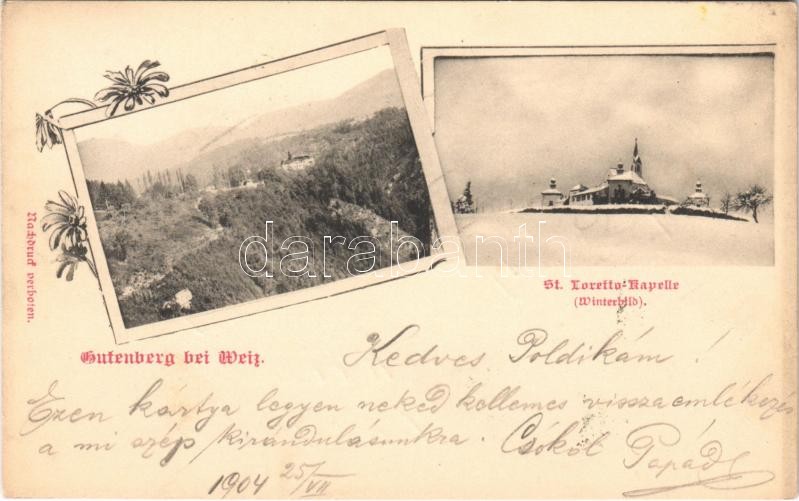 Nachdruck verboten.
St. Loretto-Kapelle
(Winterbild).
Gutenberg bei Weiz.
darabanth
Kedves Poldikám!
Ezen kártya legyen neked kellemes visszaemlékezés
a mi szép kirándulásunkra. Csókol Papád
1904 25/VII